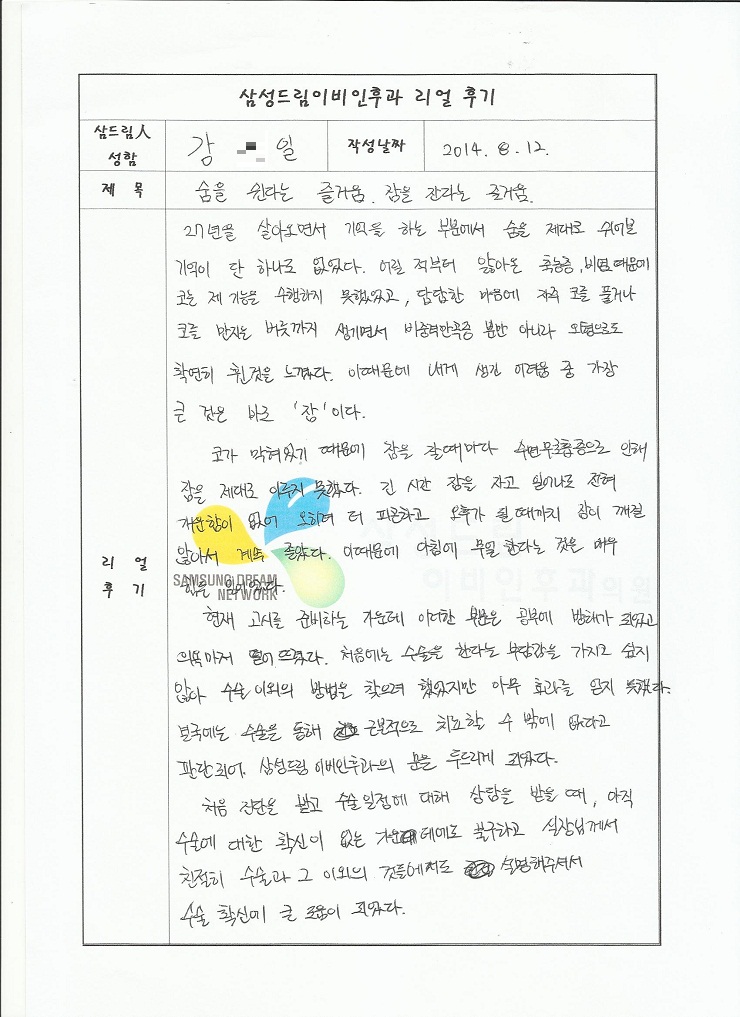 삼성드림이비인후과 리얼 후기
삼드림人 성함
강 일
작성날짜
2014. 8. 12.
제 목
숨을 쉰다는 즐거움. 잠을 잔다는 즐거움.
27년을 살아오면서 기억을 하는 부분에서 숨을 제대로 쉬어본
기억이 단 하나도 없었다. 어릴 적부터 앓아온 축농증, 비염때문에
코는 제 기능을 수행하지 못했었고, 답답한 마음에 자주 코를 풀거나
코를 만지는 버릇까지 생기면서 비중격만곡증 뿐만 아니라 외형으로도
확연히 휜것을 느꼈다. 이때문에 내게 생긴 어려움 중 가장
큰 것은 바로 '잠'이다.
코가 막혀있기 때문에 잠을 잘때마다 수면무호흡증으로 인해
잠을 제대로 이루지 못했다. 긴 시간 잠을 자고 일어나도 전혀
개운함이 없어 오히려 더 피곤하고 오후가 될때까지 잠이 깨질
않아서 계속 졸았다. 이때문에 아침에 무얼 한다는 것은 매우
힘들 일이었다.
현재 고시를 준비하는 가운데 이러한 부분은 공부에 방해가 되었고
의욕마저 떨어뜨렸다. 처음에는 수술을 한다는 부담감을 가지고 싶지
않아 수술 이외의 방법을 찾으려 했었지만 아무 효과를 얻지 못했다.
결국에는 수술을 통해 근본적으로 치료할 수 밖에 없다고
판단되어, 삼성드림이비인후과의 문을 두드리게 되었다.
처음 진단을 받고 수술일정에 대해 상담을 받을 때, 아직
수술에 대한 확신이 없는 가운데에도 불구하고 실장님께서
친절히 수술과 그 이외의 것들에서도 설명해주셔서
수술 확신에 큰 도움이 되었다.
리 얼
후 기
SAMSUNG DREAM
NETWORK
이비인후과의원